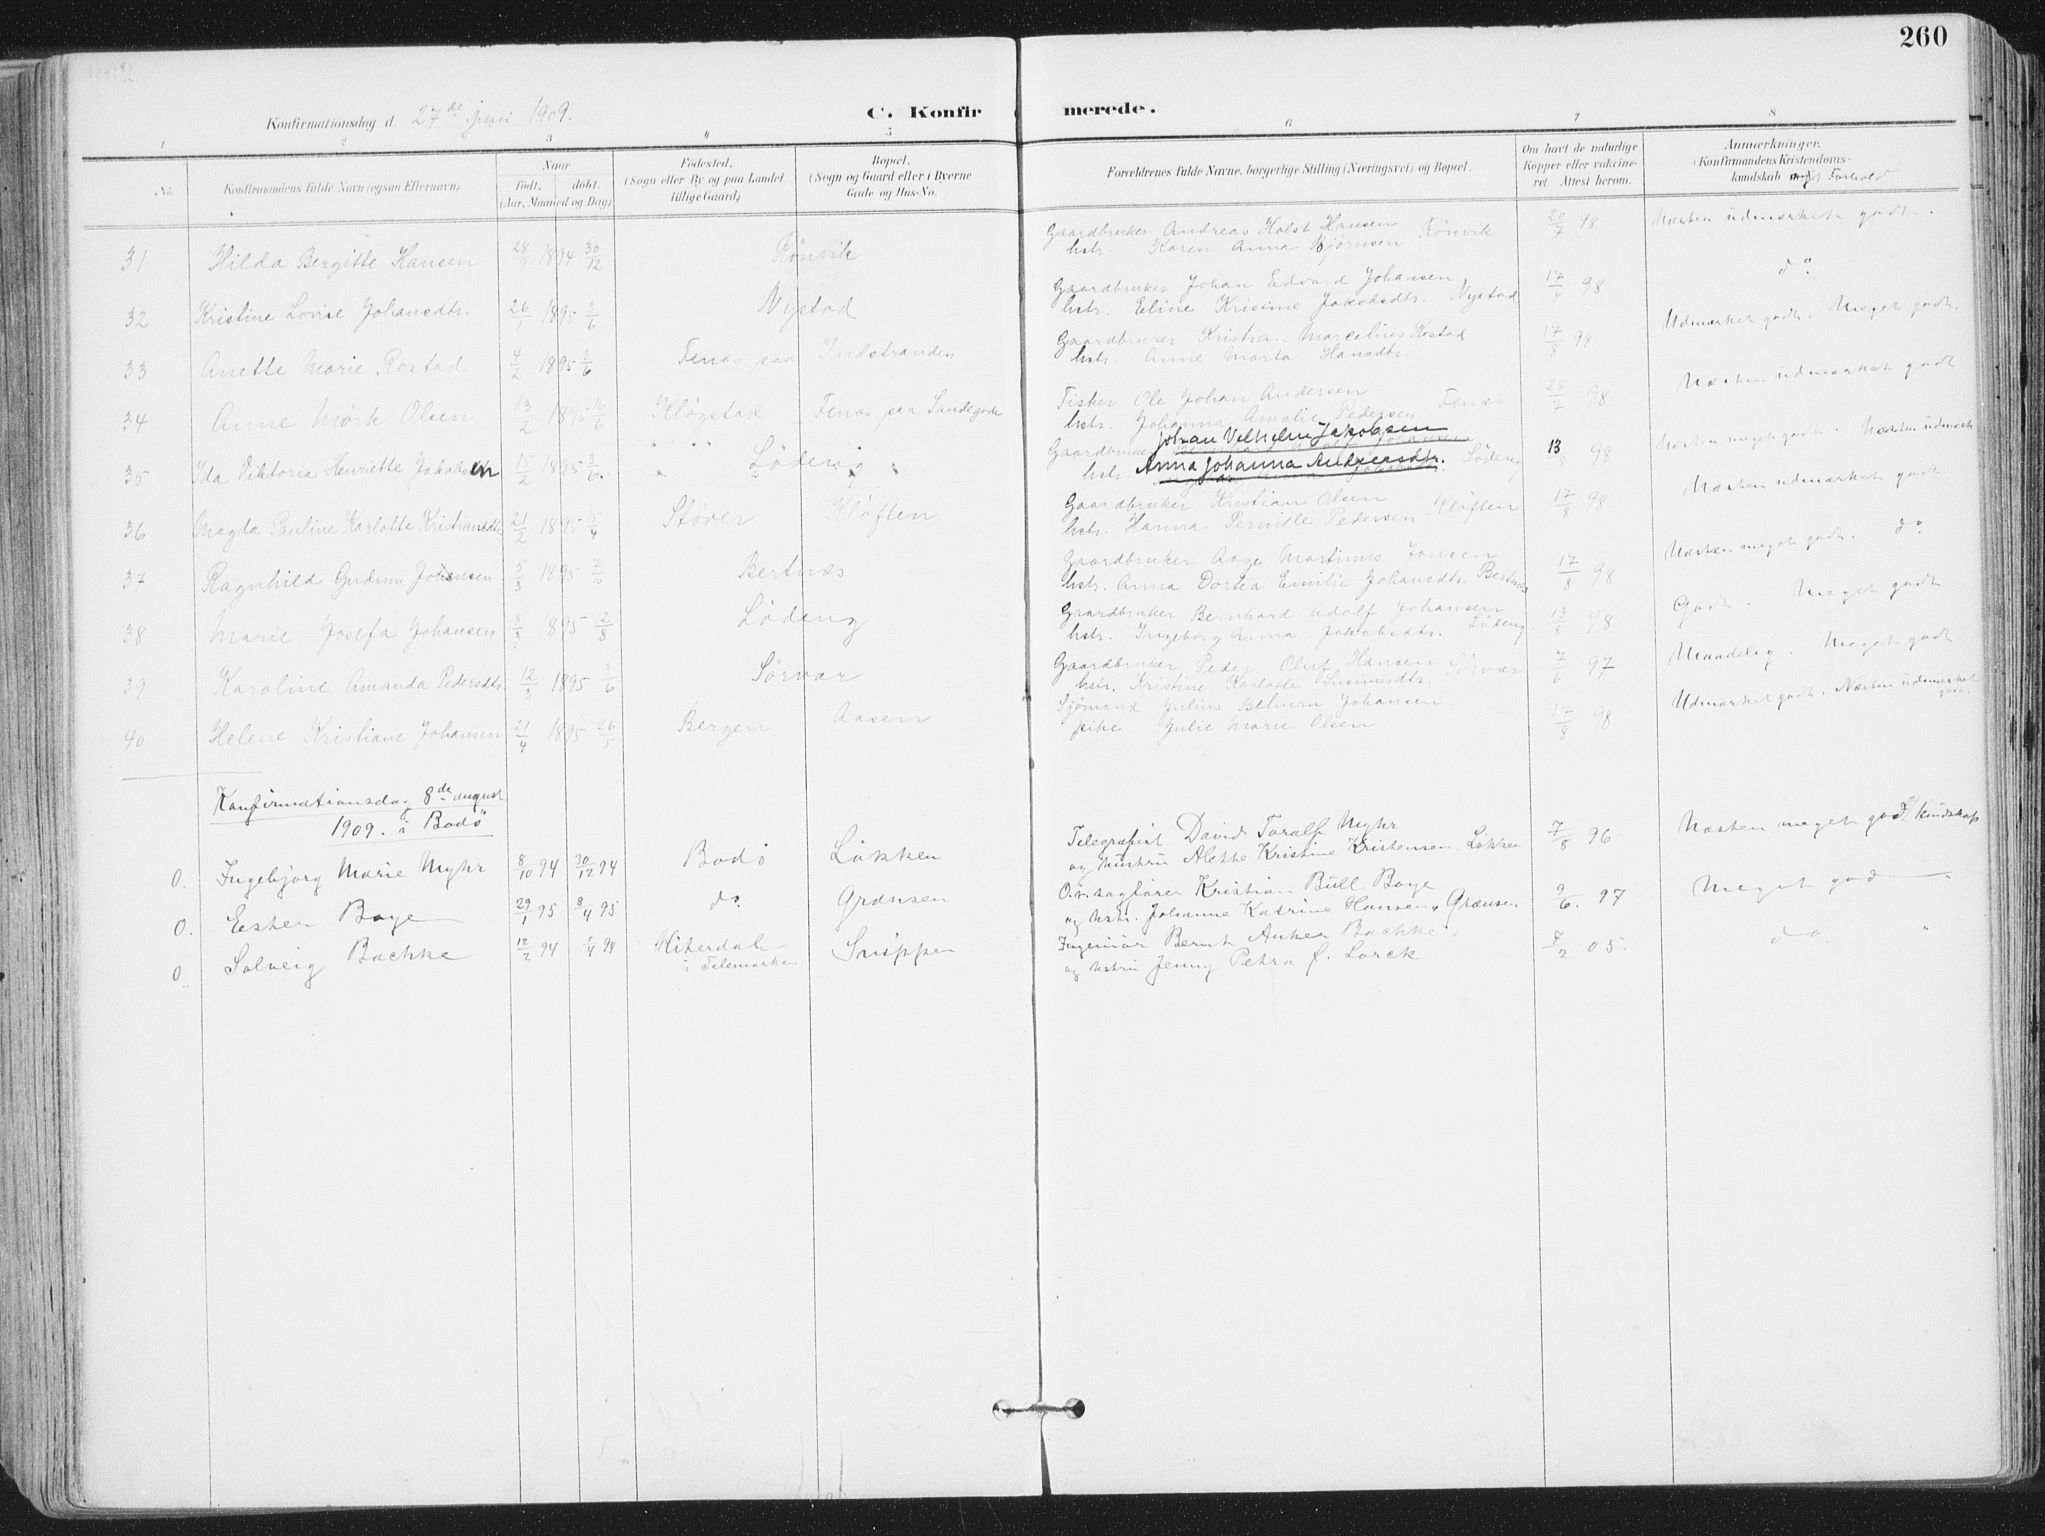 260
Konfirmationsdag d. 27de juni 1909.
C. Konfirmerede.
1 2 3 4 5 6 7 8
No. Konfirmandens fulde Navn (ogsaa Efternavn)
Naar født, døbt. (Aar, Maaned og Dag)
Fødested. (Sogn eller By og paa Landet tillige Gaard)
Bopæl. (Sogn og Gaard eller i Byerne Gade og Hus-No.
Forældrenes fulde Navne, borgerlige Stilling (Næringsvei) og Bopæl.
Om havt de naturlige Kopper eller vaccineret. Attest herom.
Anmærkninger. (Konfirmandens Kristendomskundskab Forhold
31 Hilda Bergitte Hansen 1894 30/12 Rønvik Gaardbruker Andreas Holst Hansen 20/7 98 Næsten udmærket godt.
hstr. Karen Anna Bjørnsen Rønvik
32 Kristine Lovise Johansdtr. 1895 Nystad Gaardbruker Johan Edvard Johansen 98 do.
hstr. Eline Kristine Jakobsdtr. Nystad
33 Anette Marie Rostad 4/2 1895 Fenes paa Indstranden Gaardbruker Kristian Marcelius Rostad 17/8 98 Udmærket godt. Meget godt.
hstr. Anne Marta Hansdtr.
34 Anne Mørk Olsen 13/2 1895 Kløgstad Fenes paa Landegode Fisker Ole Johan Andersen 98 Næsten udmærket godt
hstr. Johanna Amalie Pedersen Fenes
35 Ida Viktoria Henriette Jakobsen 15/2 1895 Løding Gaardbruker Johan Vilhelm Jakobsen 13/8 98 Næsten meget godt. Næsten udmærk
hstr. Anna Johanna Andreasdtr. Løding
36 Magda Pauline Karlotte Kristiansdtr. 21/2 1895 15/4 Støver Kløften Gaardbruker Kristian Olsen 17/8 98 Næsten udmærket godt
hstr. Hanna Pernille Pedersen Kløften
37 Ragnhild Gudrun Jonsen 5/3 1895 Bertnes Gaardbruker Aage Martinus Jonsen 17/8 98 Næsten meget godt. do
hstr. Anna Dortea Emilie Johansdtr. Bertnes
38 Marie Josefa Johansen 8/3 1895 12/8 Løding Gaardbruker Bernhard Adolf Johansen 13/8 98 Godt. Meget godt
hstr. Ingeborg Anna Jakobsdtr. Løding
39 Karoline Amanda Pedersdtr. 12/3 1895 Sørvær Gaardbruker Peder Oluf Hansen Sørvær 7/6 97 Maadelig. Meget godt.
hstr. Kristine Karlotte
40 Helene Kristiane Johansen 21/4 1895 26/5 Bergen Aasen Sjømand Julius Johansen 17/8 98 Udmærket godt. Næsten udmærket godt.
pike Julie Marie Olsen
Konfirmationsdag 8de august
1909. i Bodø
0. Ingebjørg Marie Myhr 8/10 94 30/12 94 Bodø Løkken Telegrafist David Toralf Myhr 7/8 96 Næsten meget god kundskap
og hustru Alethe Kristine Kristensen. Løkken
0. Esther Boye 29/1 95 8/4 95 do. Grænsen O.r.sagfører Kristian Bull Boye 9/6. 97 Meget god "
og hstr. Johanne Katrine Hansen, Grænsen
0. Solveig Bachke 12/2 94 94 Hiterdal i Telemarken Snippen Ingeniør Bernt Anker Bachke. 05. do. "
og hstru Jenny Petra f. Lorck